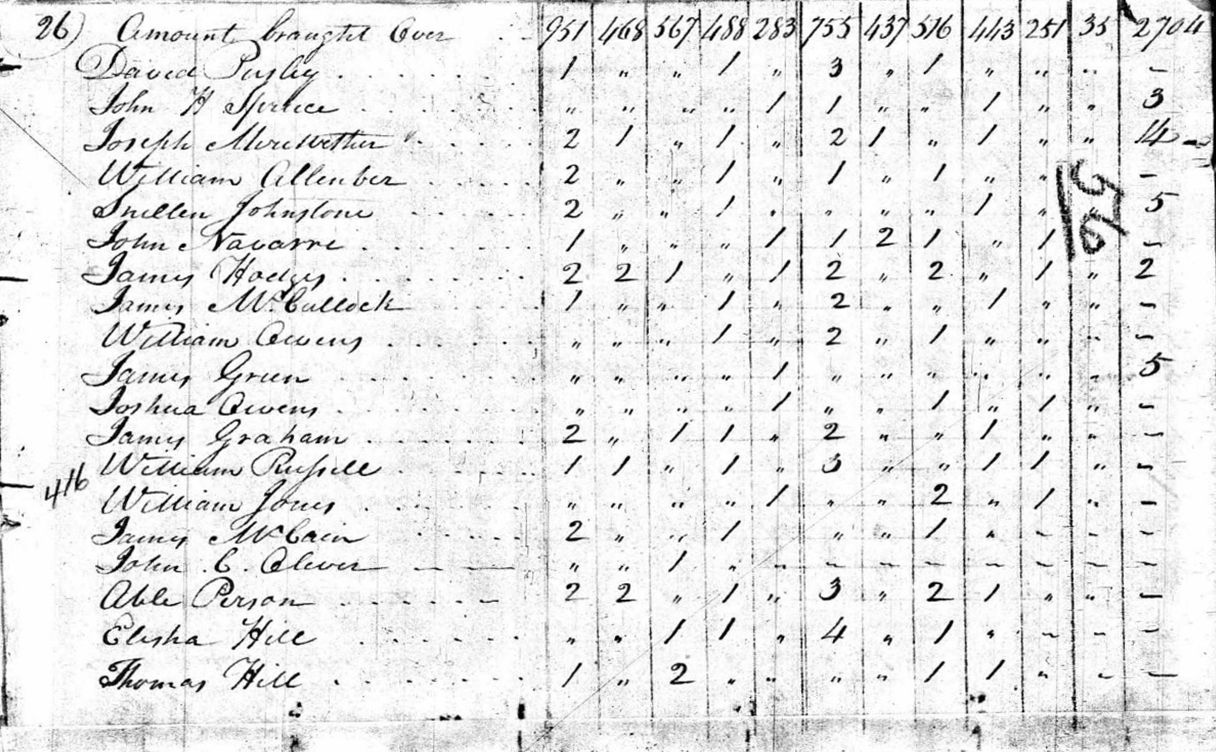 26) Amount braught Over . . 951 468 567 488 283 755 437 516 443 251 35 2704
David Pusley . . . . . 1 " " 1 " 3 " 1 " " " –
John H Spruce . . . . " " " " 1 1 " " 1 " " 3
Joseph Meriwether . . . . 2 1 " 1 " 2 1 " 1 " " 14
William Allenber . . . . 2 " " 1 " 1 " 1 " " –
Snellen Johnstone . . . . 2 " " 1 " " " " 1 " " 5
56
John Navarre . . . . 1 " " " 1 1 2 1 " 1 –
James Hodges . . . . 2 2 1 " 1 2 " 2 " 1 " 2
James McCullock . . . . 1 " " 1 " 2 " " 1 " " –
William Owens . . . . " " " 1 " 2 " 1 " " " –
James Green . . . . " " " " 1 " " " " " " 5
Joshua Owens . . . . " " " " 1 " " 1 " 1 " –
James Graham . . . . 2 " 1 1 " 2 " " 1 " " –
William Russell . . . . 1 1 " 1 " 3 " " 1 1 " –
416
William Jones . . . . " " " " 1 " " 2 " 1 " –
James McCain . . . . 2 " " 1 " " 1 " – – –
John C. Clever – – – " " 1 – – – – – – – – –
Able Person . . . . 2 2 " 1 " 3 " 2 1 " " –
Elisha Hill . . . . " " 1 1 " 4 " 1 " – – –
Thomas Hill . . . . 1 " 2 " " " " 1 1 " – –